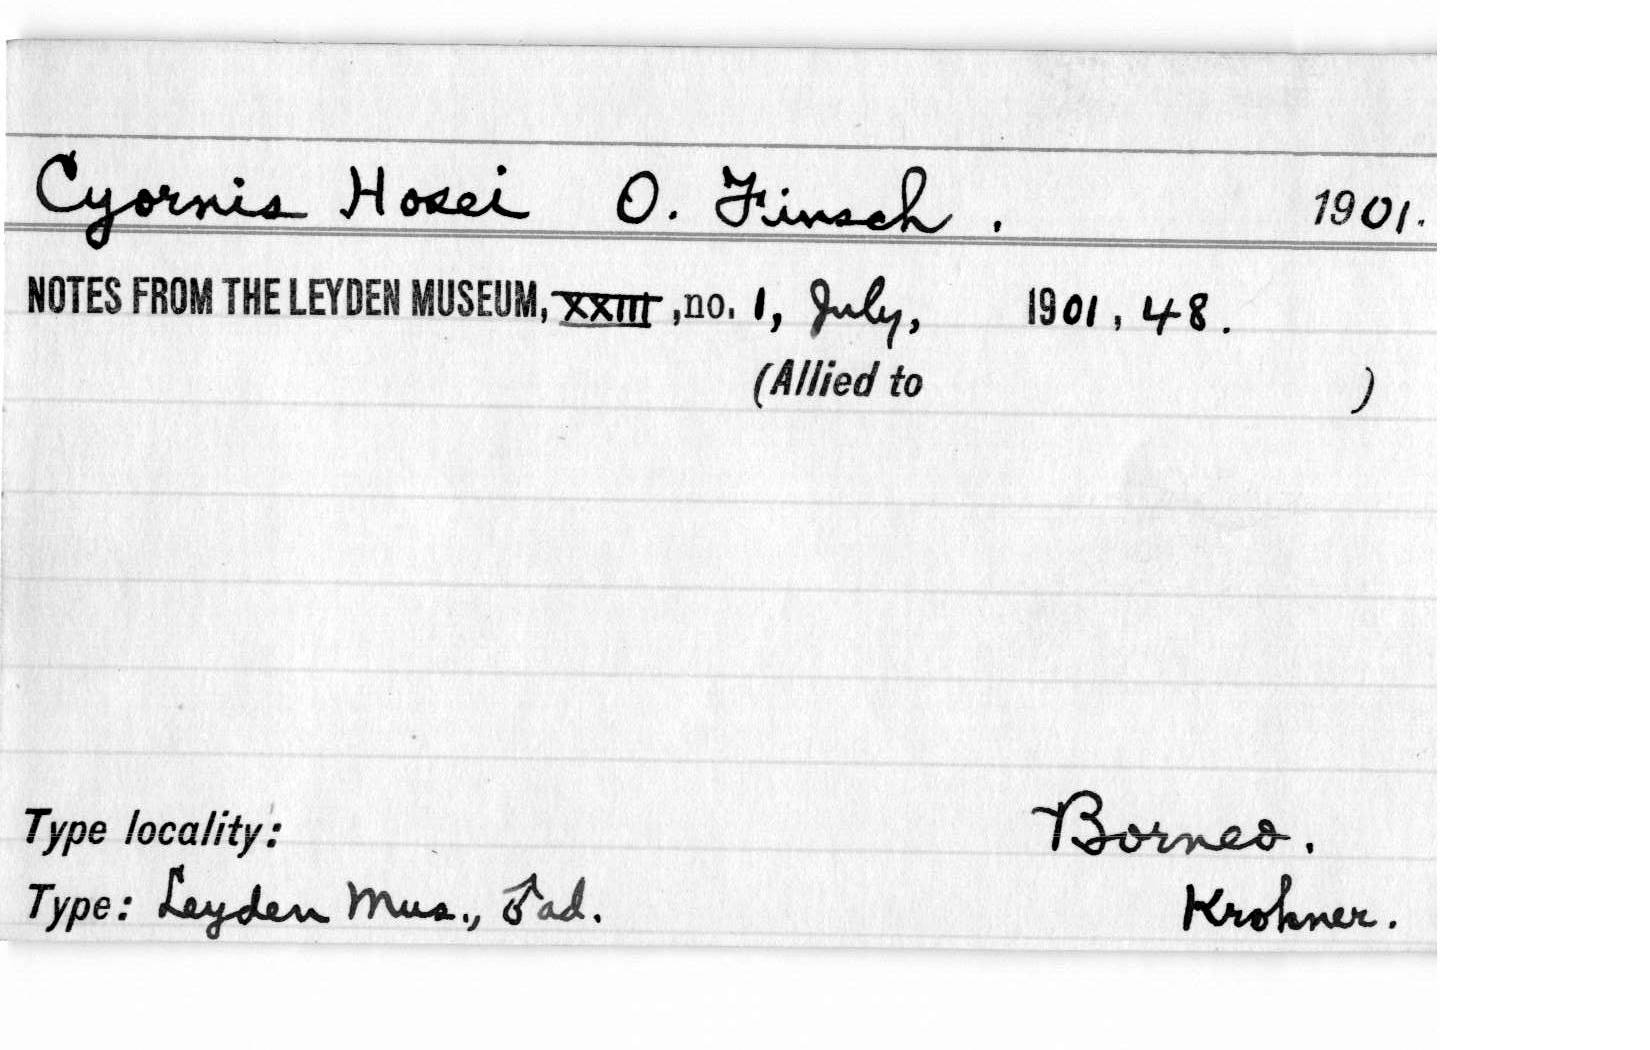 Cyornis Hosei O. Finsch. 1901.
NOTES FROM THE LEYDEN MUSEUM, XXIII, no. 1, July, 1901, 48.
(Allied to )
Type locality: Borneo.
Type: Leyden Mus., ♂ ad. Krohner.